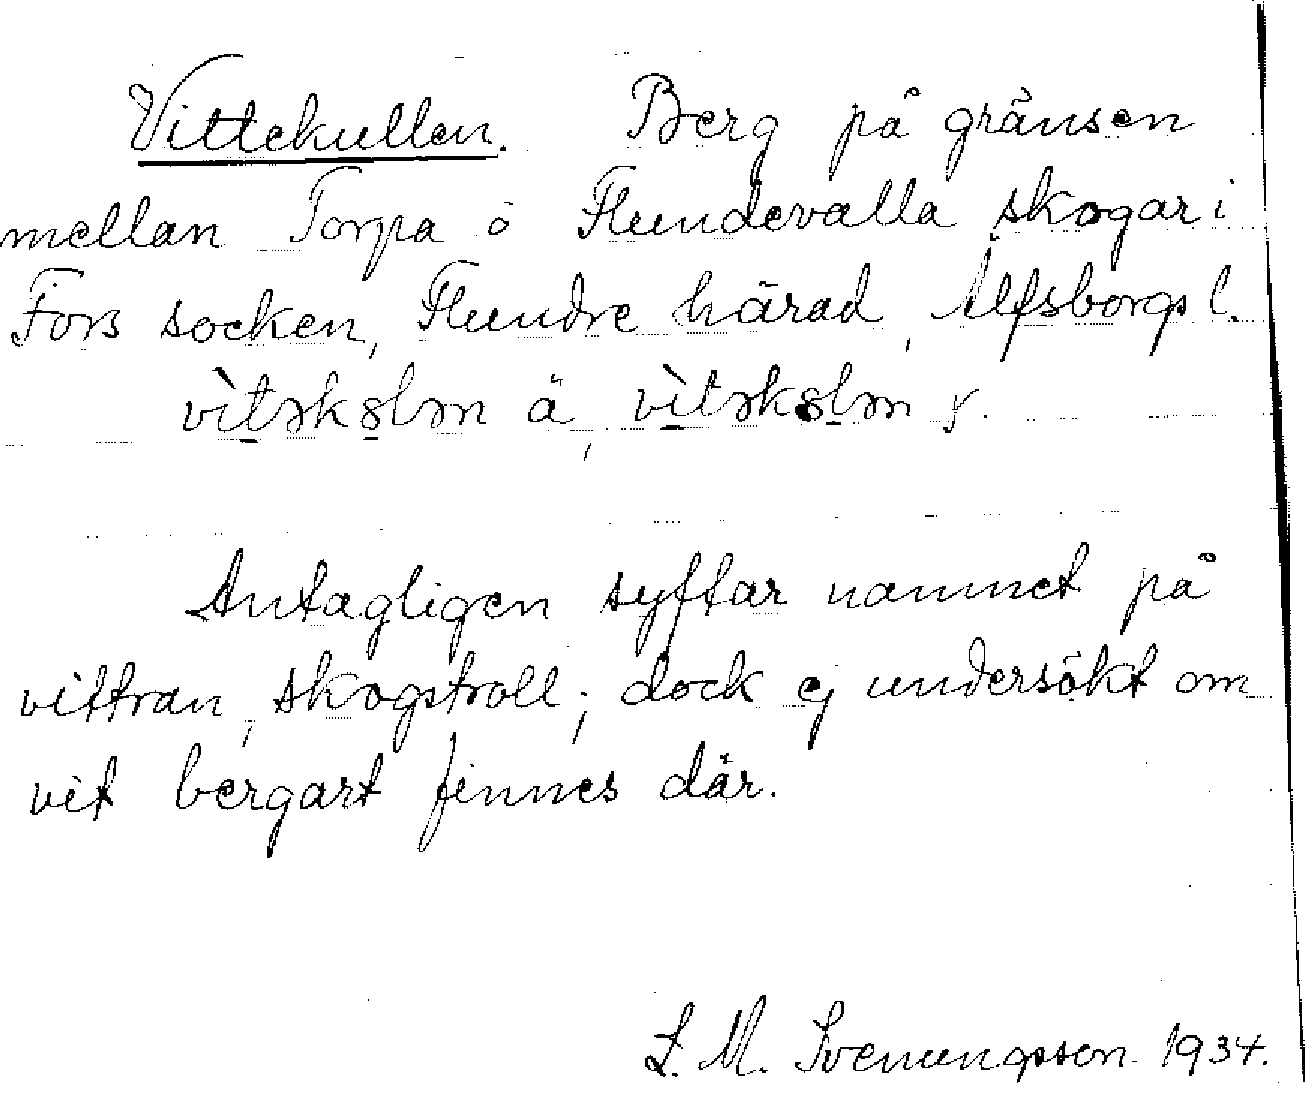 Vittekullen. Berg på gränsen
mellan Torpa o Flundevalla skogar i
Fors socken, Flundre härad, Älfsborgs l.
ä, y.
Antagligen syftar namnet på
vittran, skogstroll; dock ej undersökt om
vit bergart finnes där.
L. M. Svenungsson 1934.